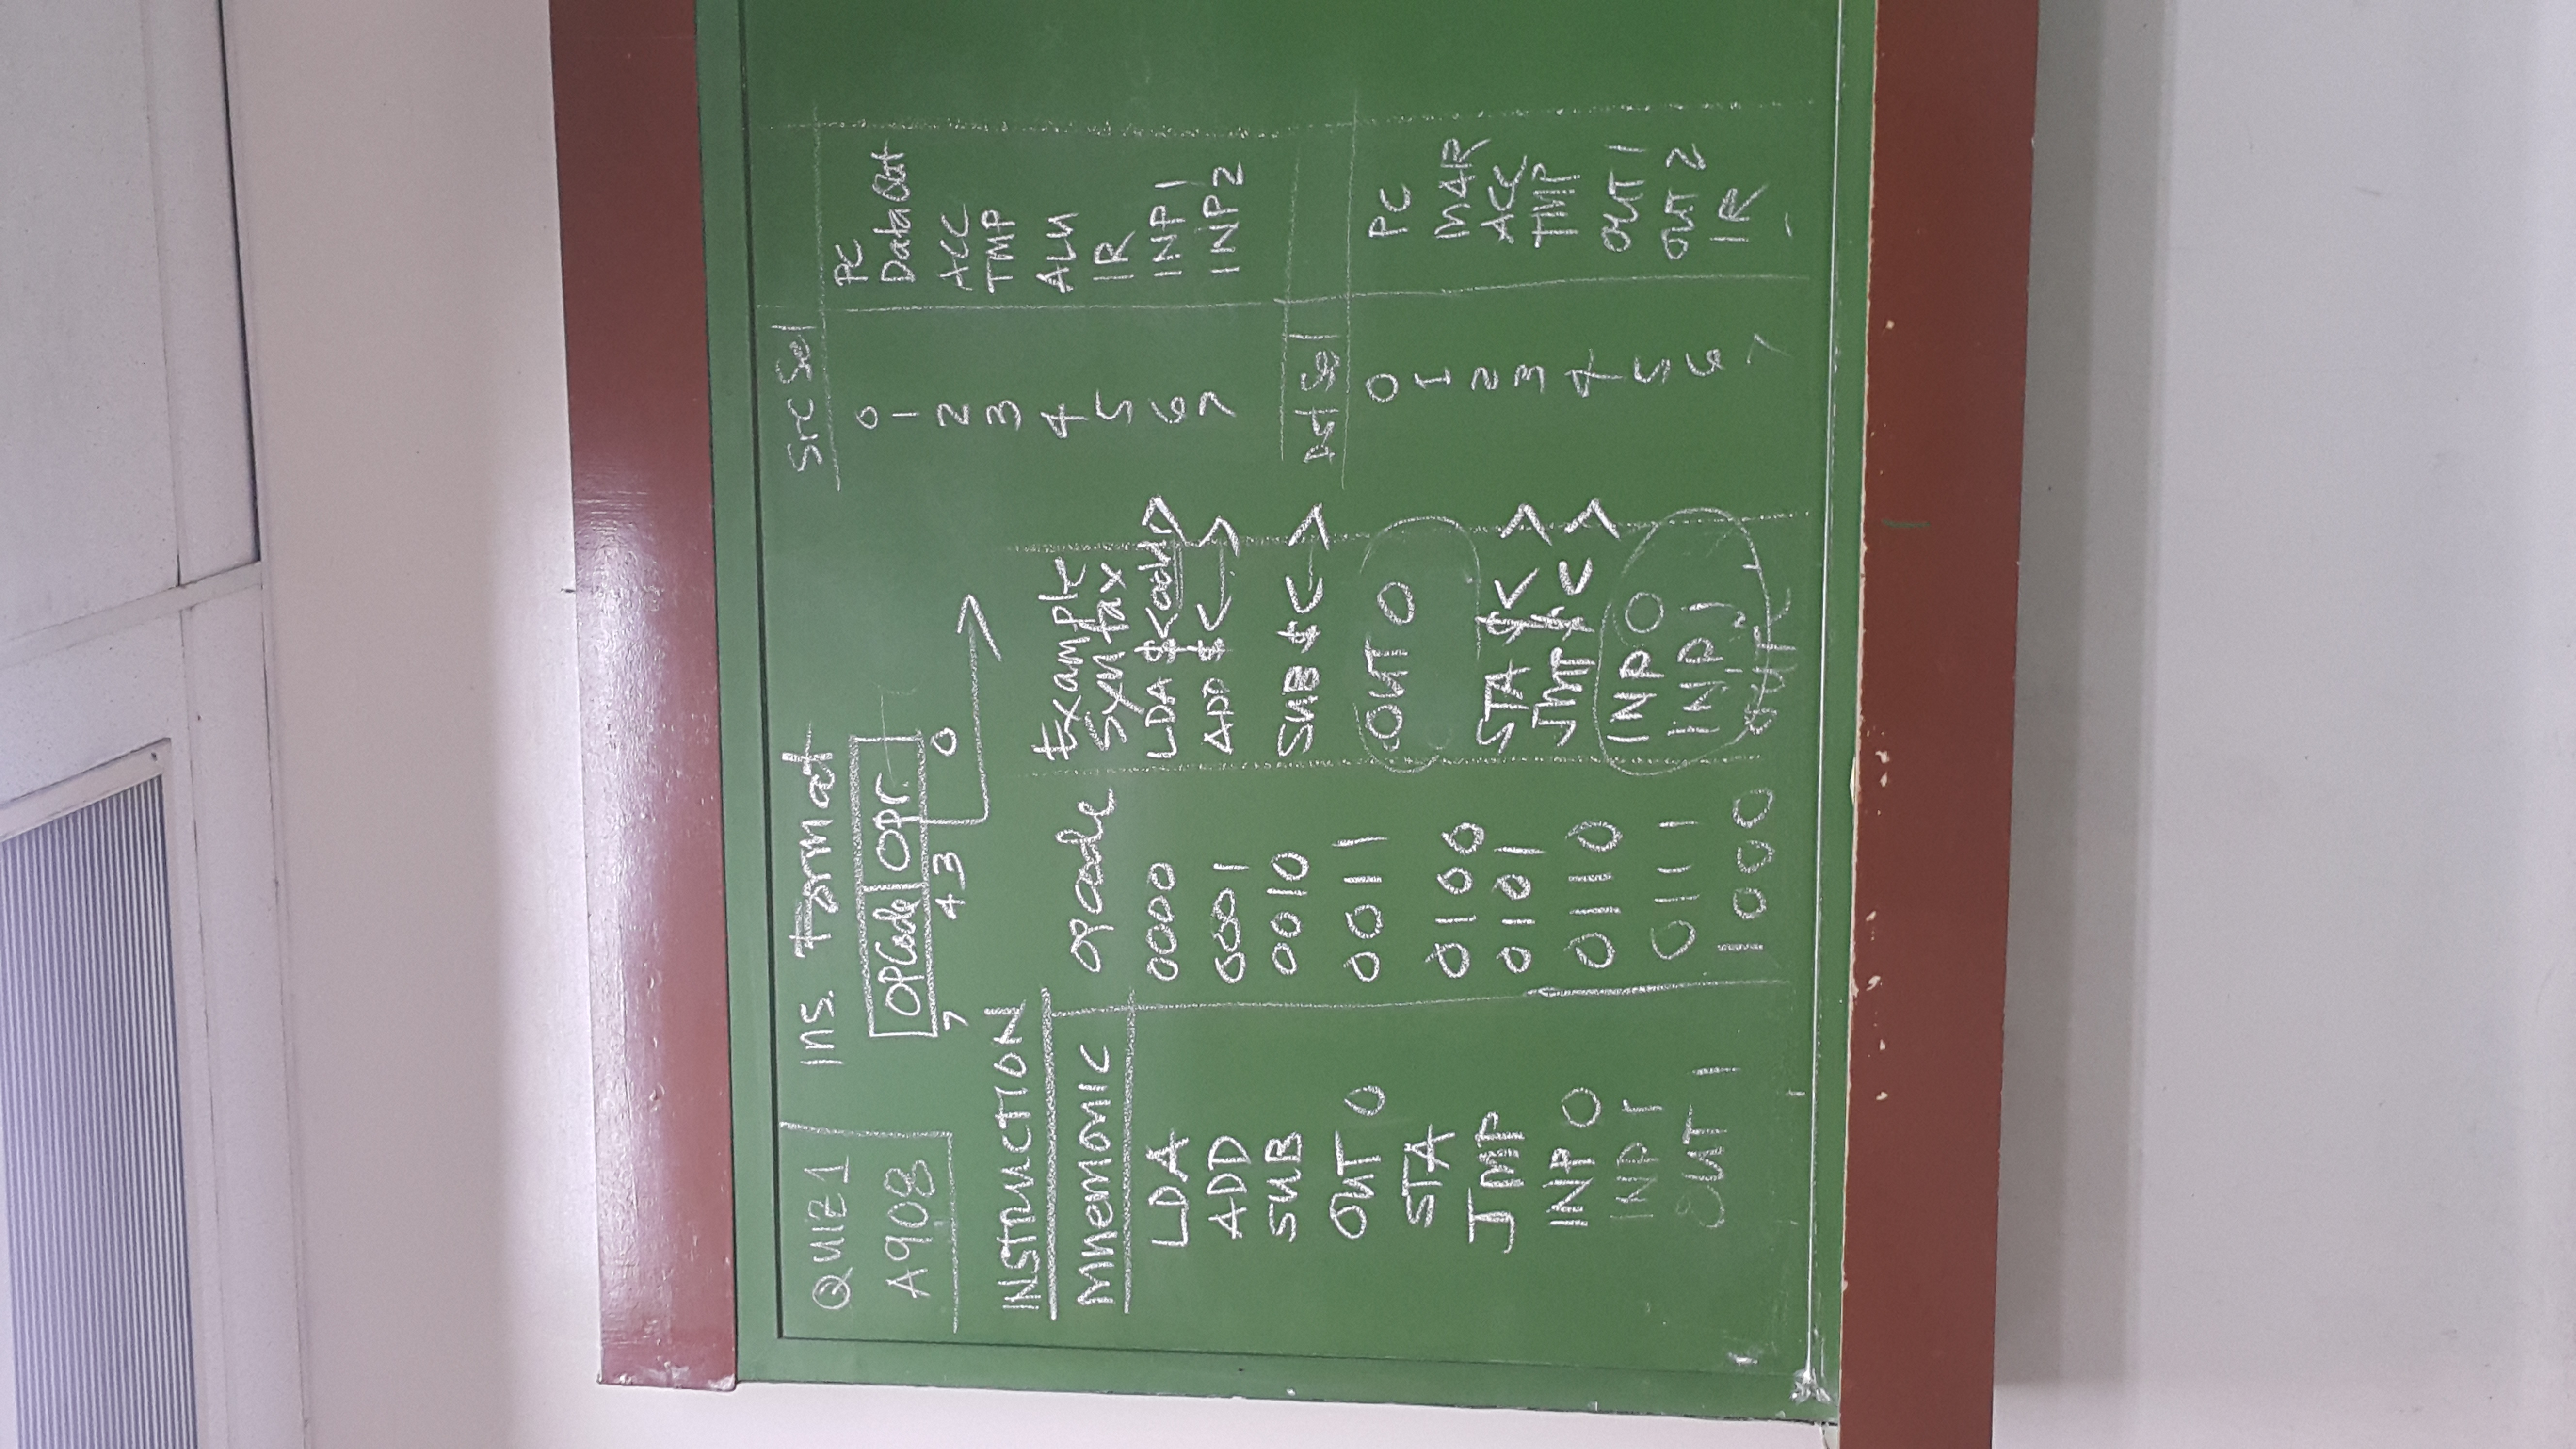 QUIZ1
A908
Ins. Format
Opcode Opr.
7 4 3 0
INSTRUCTION
Mnemonic opcode Example Syntax
LDA 0000 LDA $<addr>
ADD 0001 ADD $< >
SUB 0010 SUB $< >
OUT 0 0011 OUT 0
STA 0100 STA $< >
JMP 0101 JMP $< >
INP 0 0110 INP 0
INP 1 0111 INP 1
OUT 1 1000 OUT 1
Src Sel
0 PC
1 Data Out
2 ACC
3 TMP
4 ALU
5 IR
6 INP1
7 INP2
Dst Sel
0 PC
1 MAR
2 ACC
3 TMP
4 OUT 1
5 OUT 2
6 IR
7 -